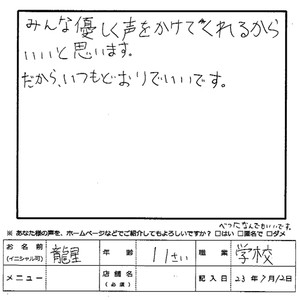 みんな優しく声をかけてくれるから
いいと思います。
だから、いつもどおりでいいです。
べつになんでもいいです。
※ あなた様の声を、ホームページなどでご紹介してもよろしいですか？ □はい □匿名で □ダメ
お名前 (イニシャル可) 龍星 年齢 11さい 職業 学校
メニュー 店舗名 (必須) 記入日 23年7月12日